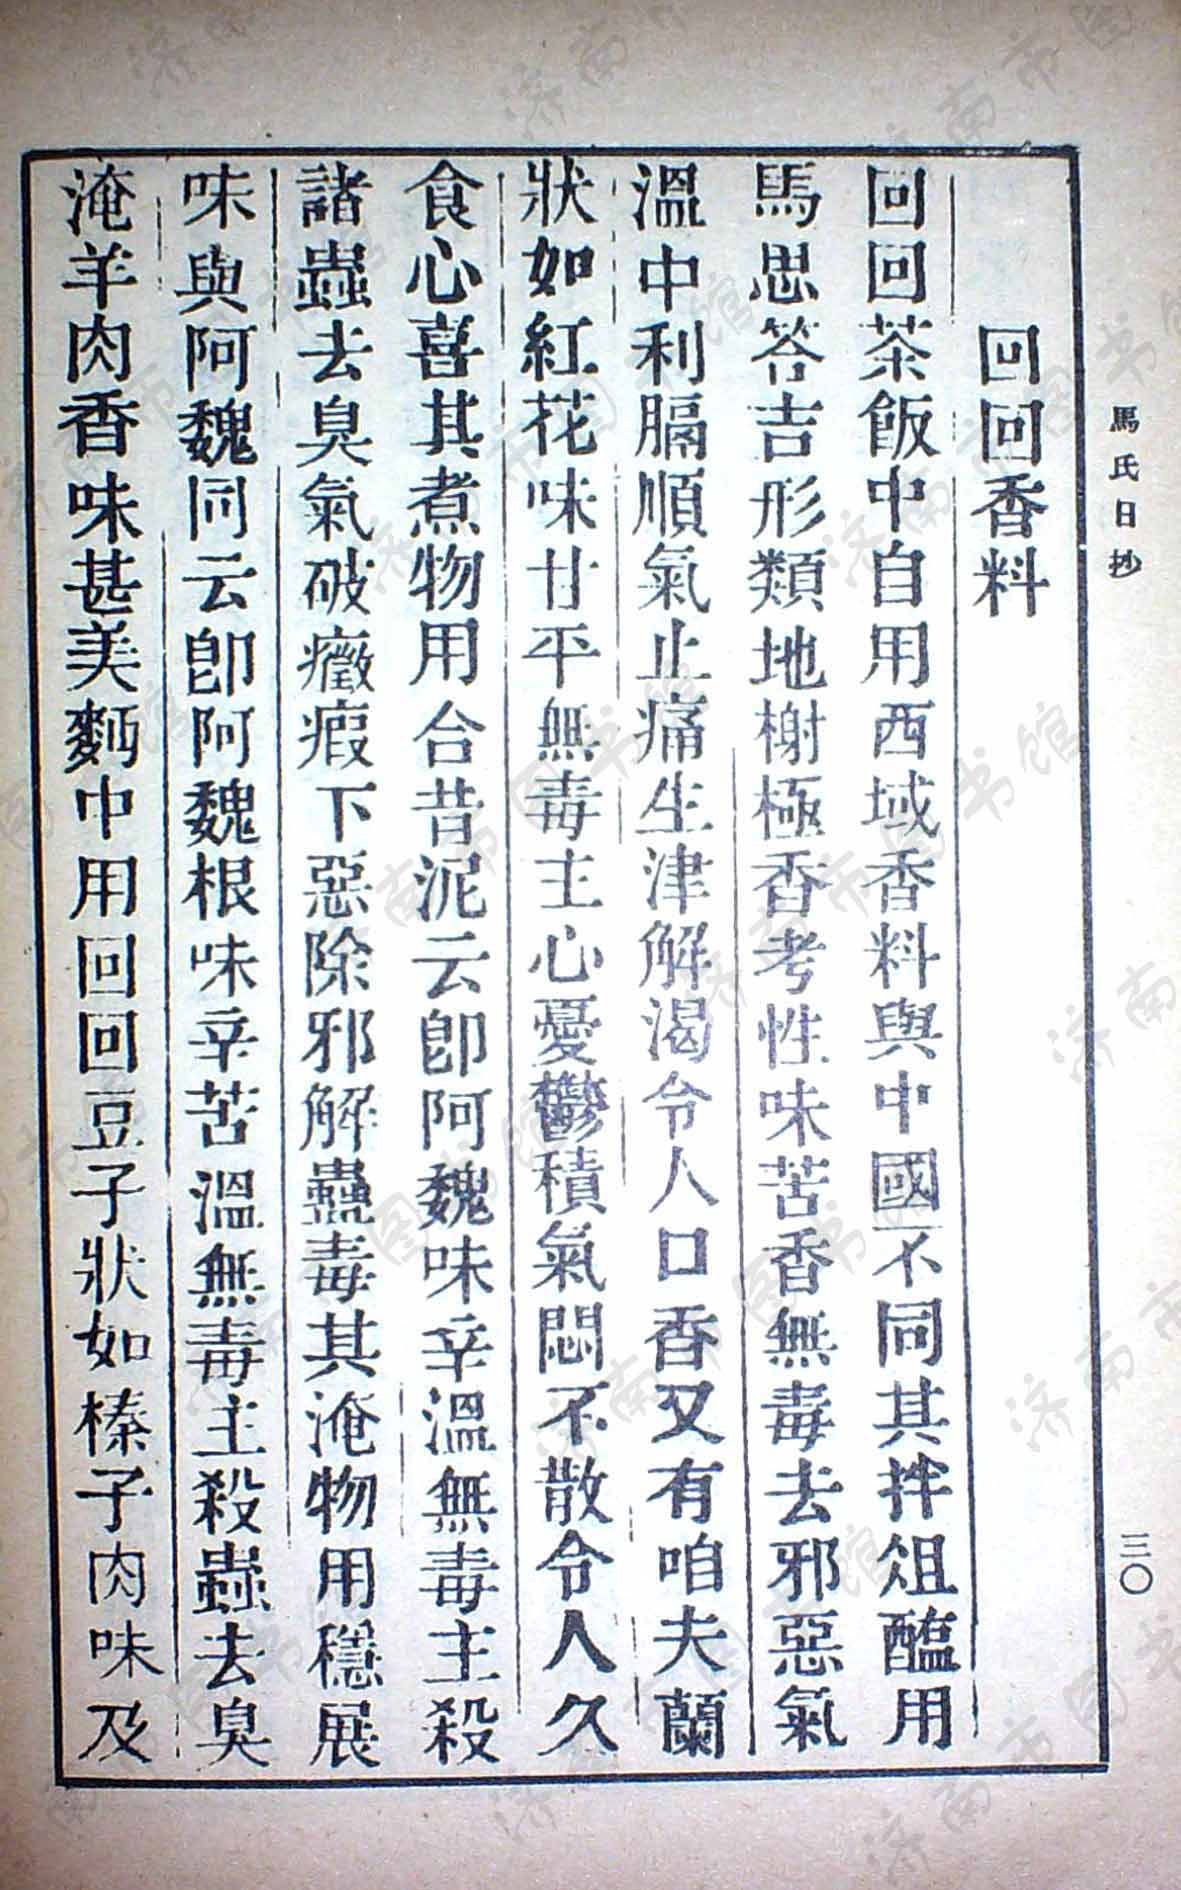 馬氏日抄
三〇
回回香料
回回茶飯中自用西域香料與中國不同其拌俎醢用
馬思答吉形類地榭極香考性味苦香無毒去邪惡氣
溫中利膈順氣止痛生津解渴令人口香又有咱夫蘭
狀如紅花味甘平無毒主心憂鬱積氣悶不散令人久
食心喜其煮物用合昔泥云卽阿魏味辛溫無毒主殺
諸蟲去臭氣破癥瘕下惡除邪解蠱毒其淹物用穩展
味與阿魏同云卽阿魏根味辛苦溫無毒主殺蟲去臭
淹羊肉香味甚美麪中用回回豆子狀如榛子肉味及
济南市图书馆